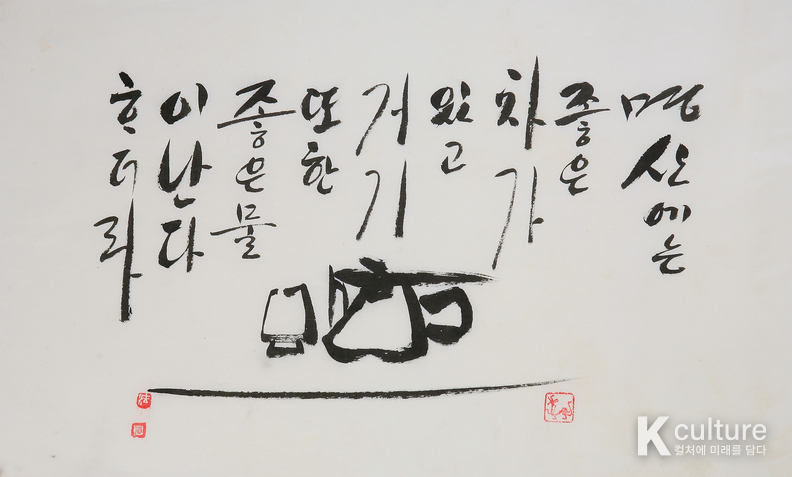 명산에는
좋은
차가
있고
거기
또한
좋은물
이난다
흐더라
K culture
컬처에 미래를 담다